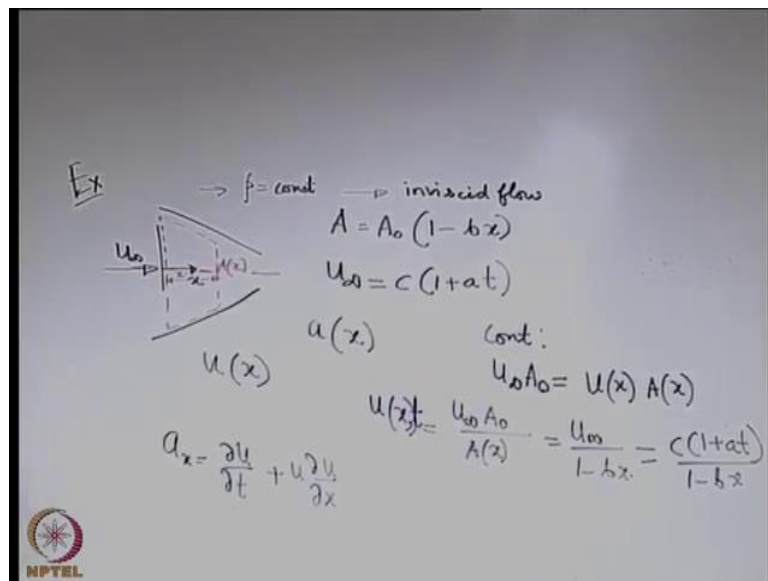 Ex
→ ρ = const → inviscid flow
A = A₀ (1 - bx)
U∞
x
A(x)
U∞ = c (1 + at)
a(x)
u(x)
Cont:
U∞A₀ = u(x) A(x)
u(x,t = U∞A₀ / A(x) = U∞ / 1 - bx = c(1 + at) / 1 - bx
aₓ = ∂u/∂t + u ∂u/∂x
NPTEL